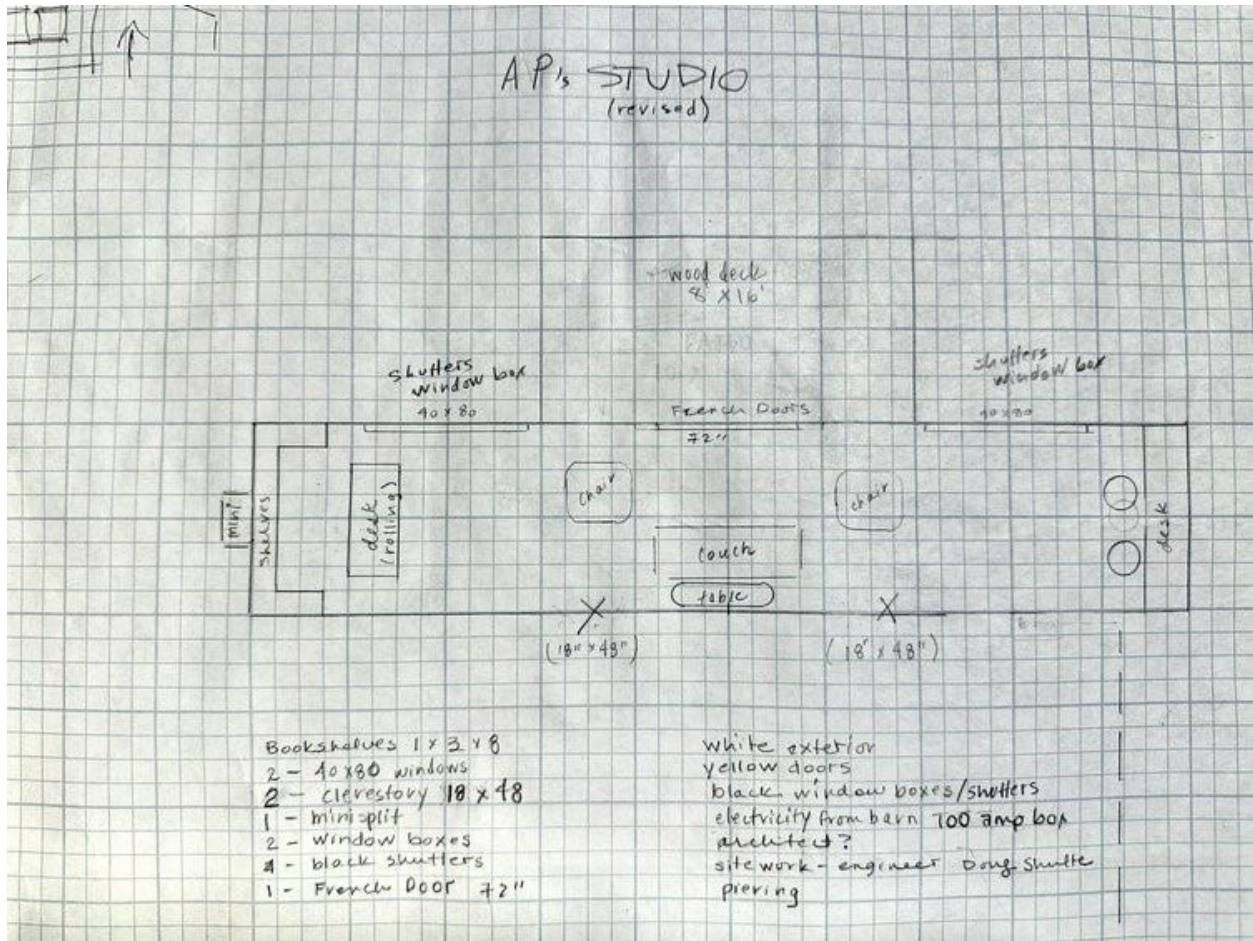 AP's STUDIO
(revised)
wood deck
8' X 16'
shutters
window box
40 x 80
French Doors
72"
shutters
window box
40 x 80
mini
shelves
desk
(rolling)
chair
couch
table
chair
desk
(18" x 48")
(18" x 48")
Bookshelves 1 x 3 x 8
2 - 40 x80 windows
2 - clerestory 18 x 48
1 - minisplit
2 - window boxes
4 - black shutters
1 - French Door 72"
white exterior
yellow doors
black window boxes/shutters
electricity from barn 100 amp box
architect?
sitework - engineer Doug
piering